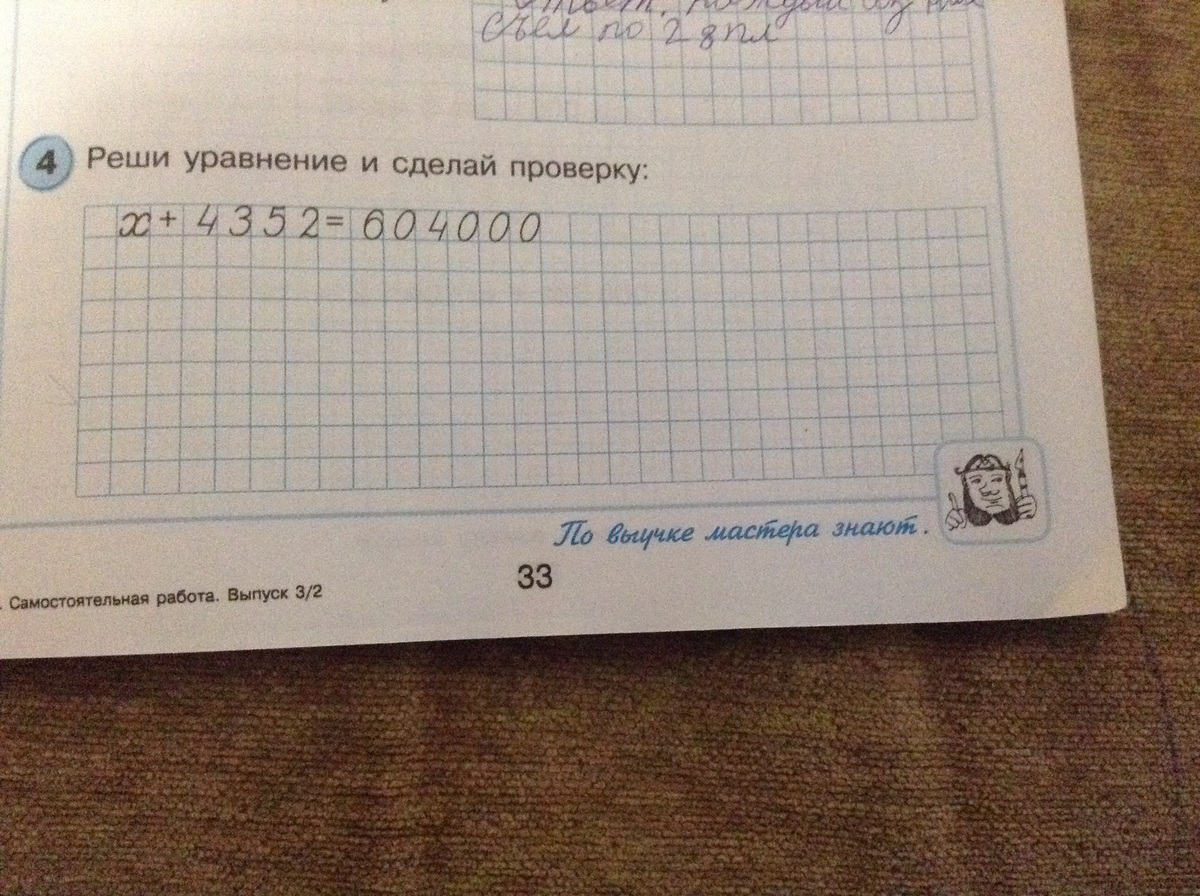 Съел по 2
4 Реши уравнение и сделай проверку:
x + 4352 = 604000
По выучке мастера знают.
33
. Самостоятельная работа. Выпуск 3/2